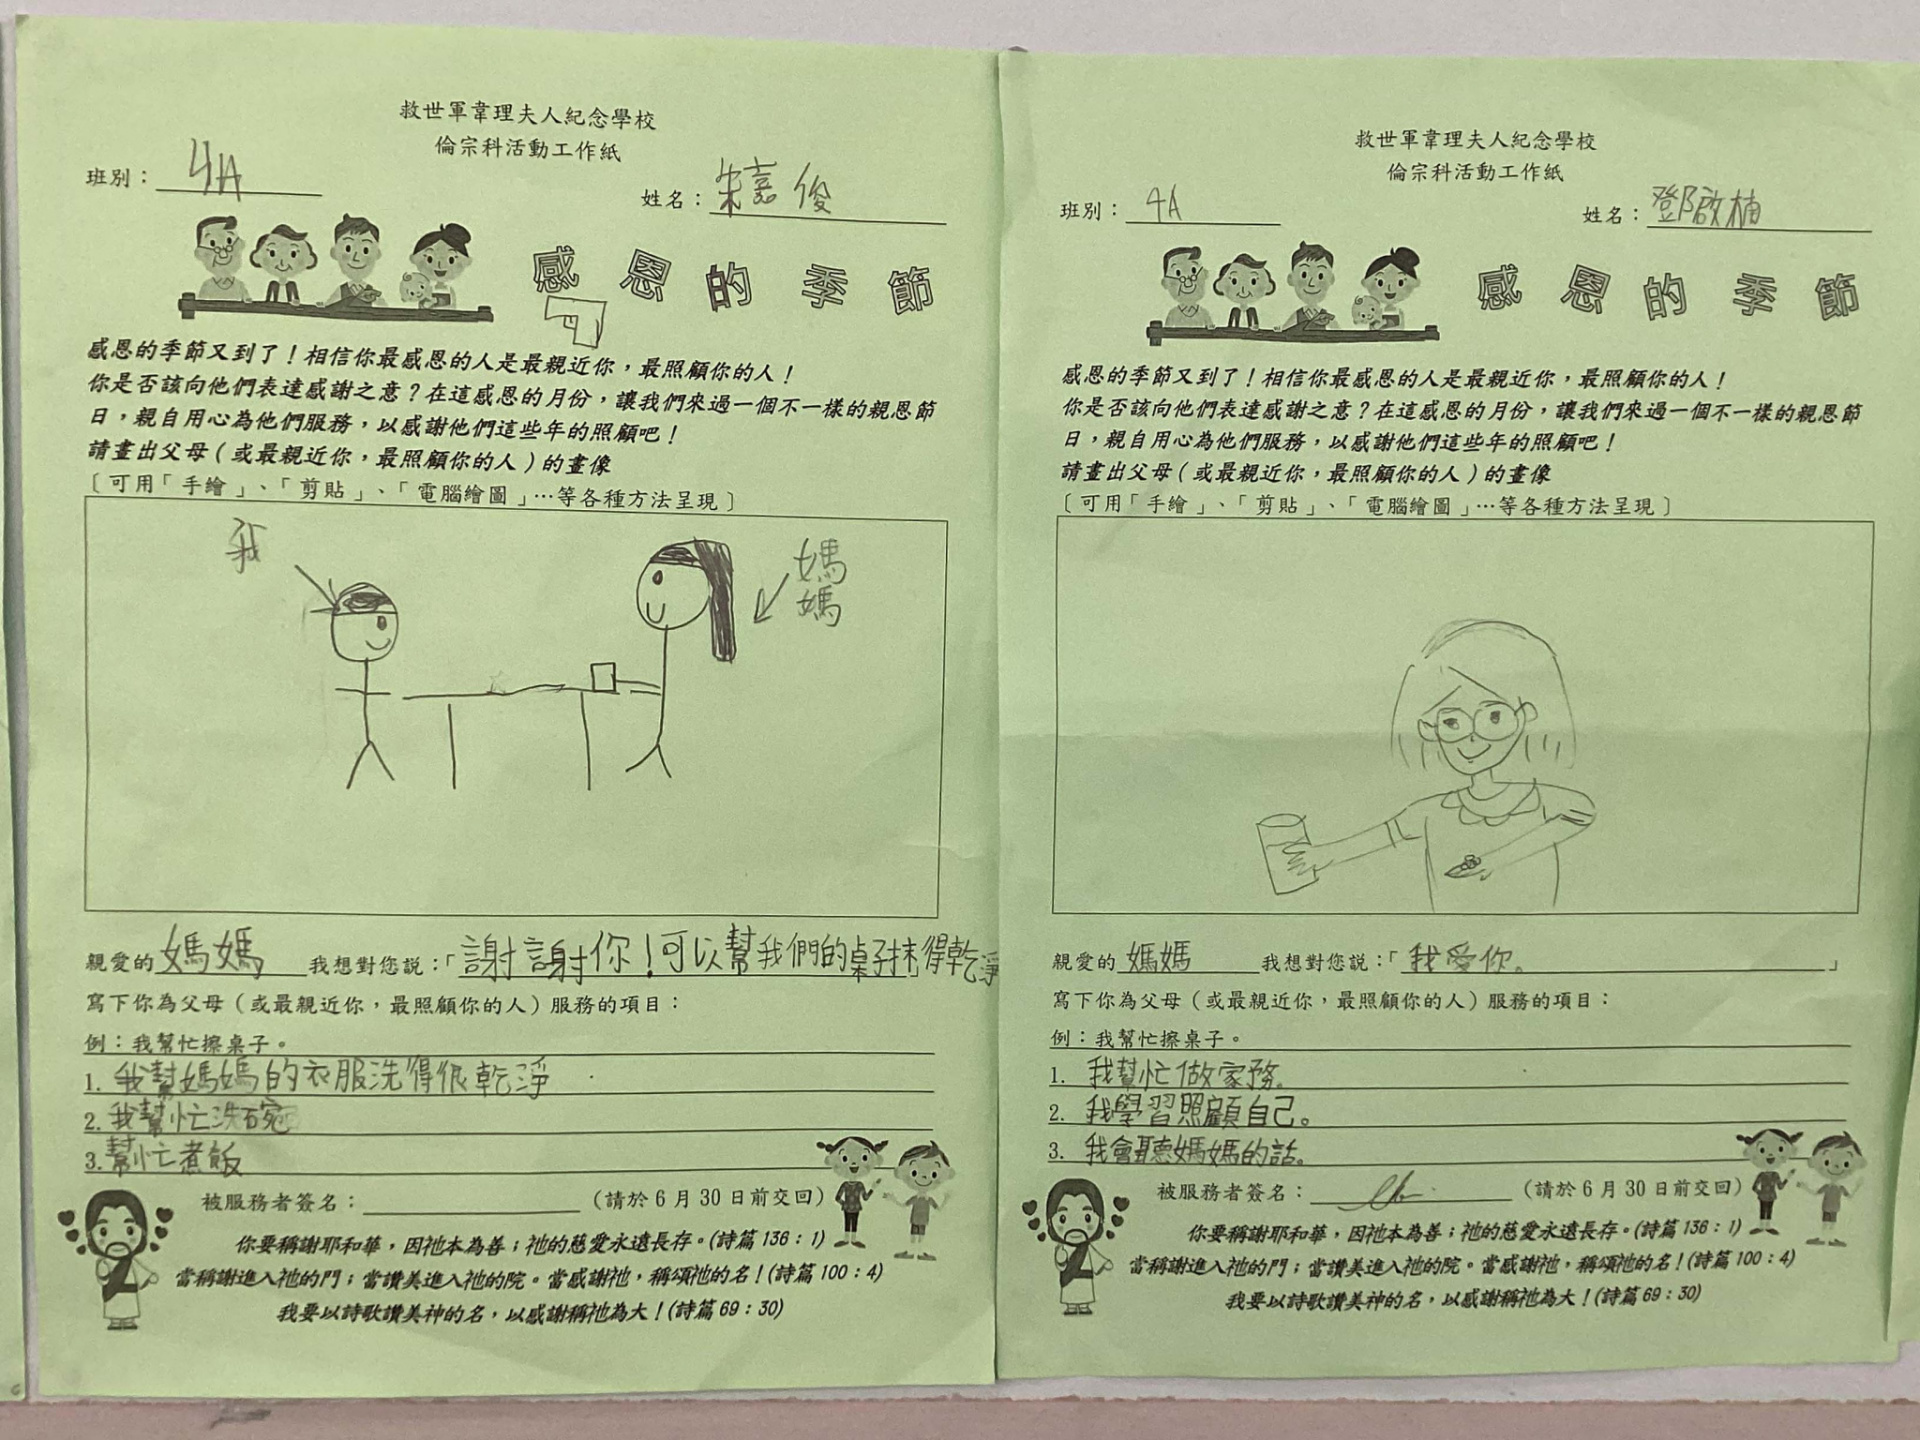 救世軍韋理夫人紀念學校
倫宗科活動工作紙
班別：4A
姓名：朱嘉俊
感恩的季節
感恩的季節又到了！相信你最感恩的人是最親近你，最照顧你的人！
你是否該向他們表達感謝之意？在這感恩的月份，讓我們來過一個不一樣的親恩節
日，親自用心為他們服務，以感謝他們這些年的照顧吧！
請畫出父母（或最親近你，最照顧你的人）的畫像
〔可用「手繪」、「剪貼」、「電腦繪圖」…等各種方法呈現〕
我
媽
媽
親愛的媽媽 我想對您說：「謝謝你！可以幫我們的桌子抹得乾淨
寫下你為父母（或最親近你，最照顧你的人）服務的項目：
例：我幫忙擦桌子。
1. 我幫媽媽的衣服洗得很乾淨
2. 我幫忙洗碗
3. 幫忙煮飯
被服務者簽名： （請於6月30日前交回）
你要稱謝耶和華，因祂本為善；祂的慈愛永遠長存。(詩篇136：1)
當稱謝進入祂的門；當讚美進入祂的院。當感謝祂，稱頌祂的名！(詩篇100：4)
我要以詩歌讚美神的名，以感謝稱祂為大！(詩篇69：30)
救世軍韋理夫人紀念學校
倫宗科活動工作紙
班別：4A
姓名：鄧啟楠
感恩的季節
感恩的季節又到了！相信你最感恩的人是最親近你，最照顧你的人！
你是否該向他們表達感謝之意？在這感恩的月份，讓我們來過一個不一樣的親恩節
日，親自用心為他們服務，以感謝他們這些年的照顧吧！
請畫出父母（或最親近你，最照顧你的人）的畫像
〔可用「手繪」、「剪貼」、「電腦繪圖」…等各種方法呈現〕
親愛的媽媽 我想對您說：「我愛你。」
寫下你為父母（或最親近你，最照顧你的人）服務的項目：
例：我幫忙擦桌子。
1. 我幫忙做家務。
2. 我學習照顧自己。
3. 我會聽媽媽的話。
被服務者簽名： （請於6月30日前交回）
你要稱謝耶和華，因祂本為善；祂的慈愛永遠長存。(詩篇136：1)
當稱謝進入祂的門；當讚美進入祂的院。當感謝祂，稱頌祂的名！(詩篇100：4)
我要以詩歌讚美神的名，以感謝稱祂為大！(詩篇69：30)